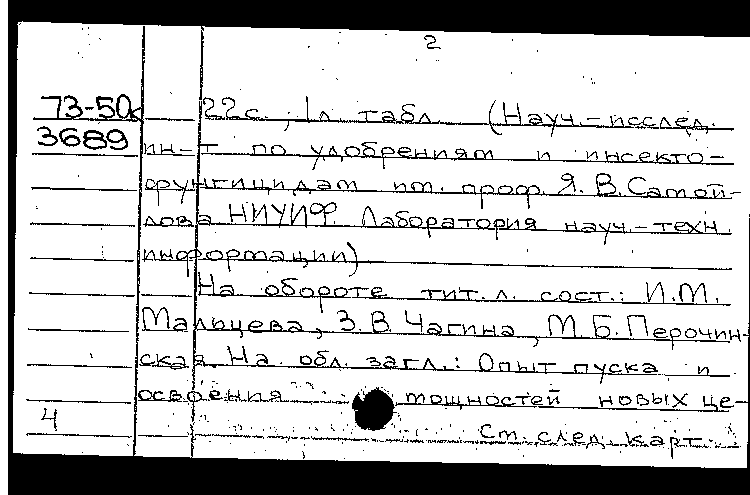 2
73-50к 22с., 1л табл (Науч.-исслед.
3689 ин-т по удобрениям и инсекто-
фунгицидам им. проф. Я. В. Самой-
лова НИУИФ. Лаборатория науч.-техн.
информации)
На обороте тит. л. сост.: И.М.
Мальцева, З.В. Чагина, М.Б. Перочин-
ская. На обл. загл.: Опыт пуска и
освоения мощностей новых це-
4 См. след. карт.